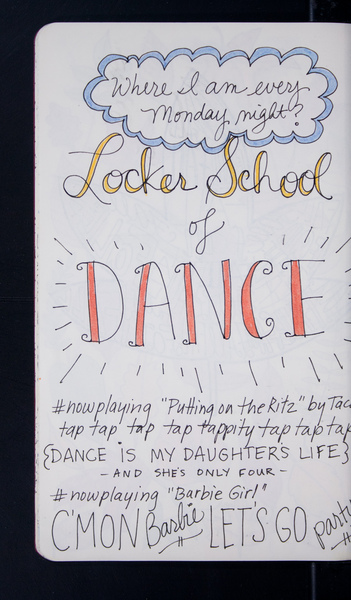 Where I am every
Monday night?
Locker School
of
DANCE
#nowplaying "Putting on the Ritz" by Taco
tap tap tap tap tappity tap tap tap
{DANCE iS MY DAUGHTER'S LIFE}
- AND SHE'S ONLY FOUR -
#nowplaying "Barbie Girl"
C'MON Barbie LET'S GO party